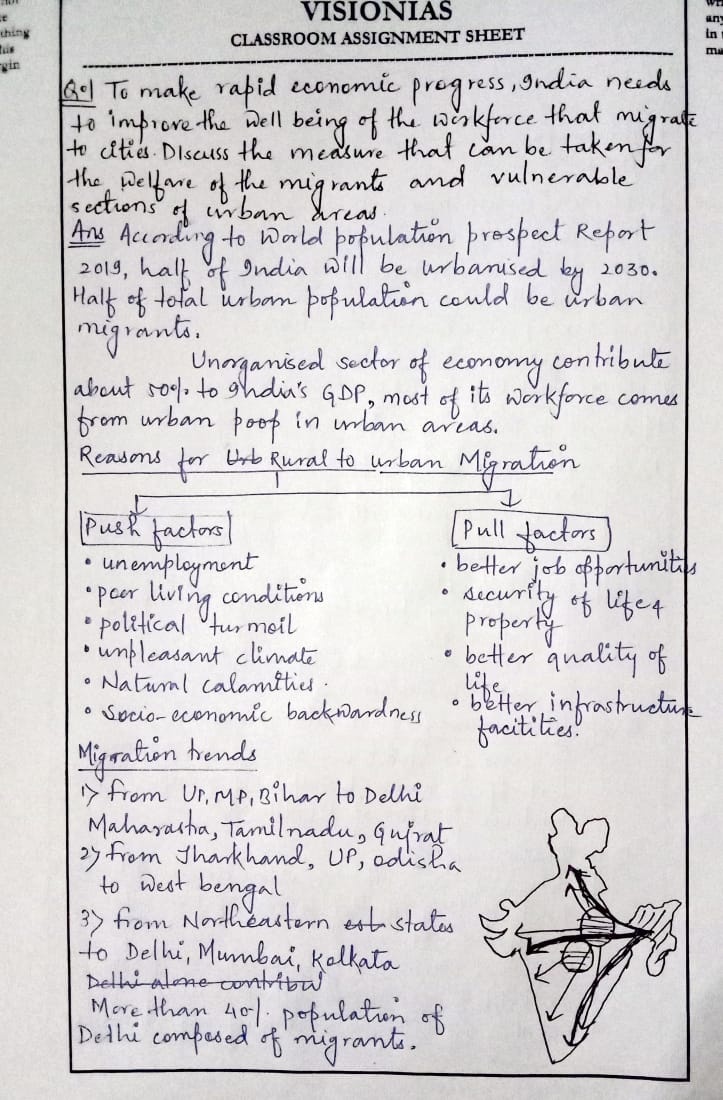 thing
his
gin
wri
any
in
ma
VISIONIAS
CLASSROOM ASSIGNMENT SHEET
Q.1 To make rapid economic progress, India needs
to improve the well being of the workforce that migrate
to cities. Discuss the measure that can be taken for
the welfare of the migrants and vulnerable
sections of urban areas.
Ans According to World population prospect Report
2019, half of India will be urbanised by 2030.
Half of total urban population could be urban
migrants.
Unorganised sector of economy contribute
about 50% to India's GDP, most of its workforce comes
from urban poop in urban areas.
Reasons for Urb Rural to urban Migration
Push factors
• unemployment
• poor living conditions
• political turmoil
• unpleasant climate
• Natural calamities.
• Socio-economic backwardness
Pull factors
• better job opportunities
• security of life &
property
• better quality of
life
• better infrastructure
facitities.
Migration trends
1) from UP, MP, Bihar to Delhi
Maharastha, Tamilnadu, Gujrat
2) from Jharkhand, UP, odisha
to west bengal
3) from Northeastern est states
to Delhi, Mumbai, Kolkata
Delhi alone contribu
More than 40% population of
Delhi composed of migrants.